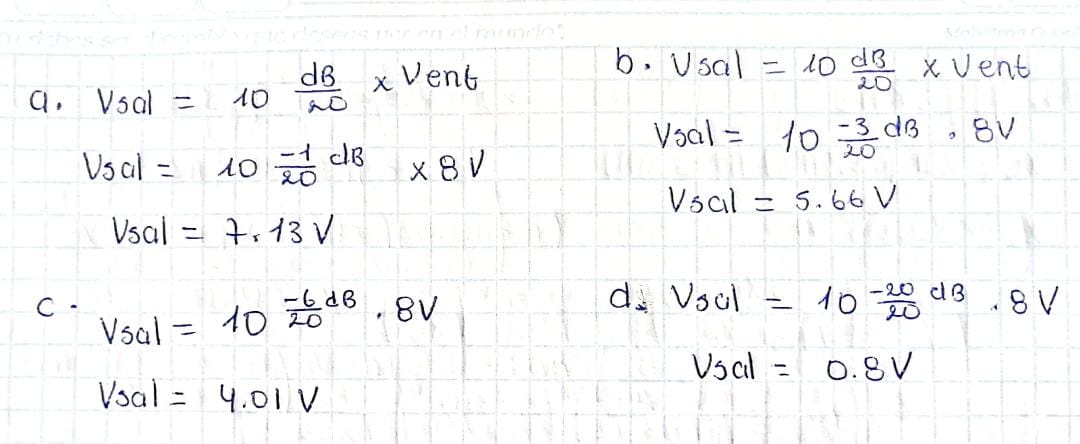 a. Vsal = 10 dB/20 x Vent
Vsal = 10 -1/20 dB x 8V
Vsal = 7.13 V
b. Vsal = 10 dB/20 x Vent
Vsal = 10 -3/20 dB . 8V
Vsal = 5.66 V
c. Vsal = 10 -6/20 dB . 8V
Vsal = 4.01 V
d. Vsal = 10 -20/20 dB . 8V
Vsal = 0.8V